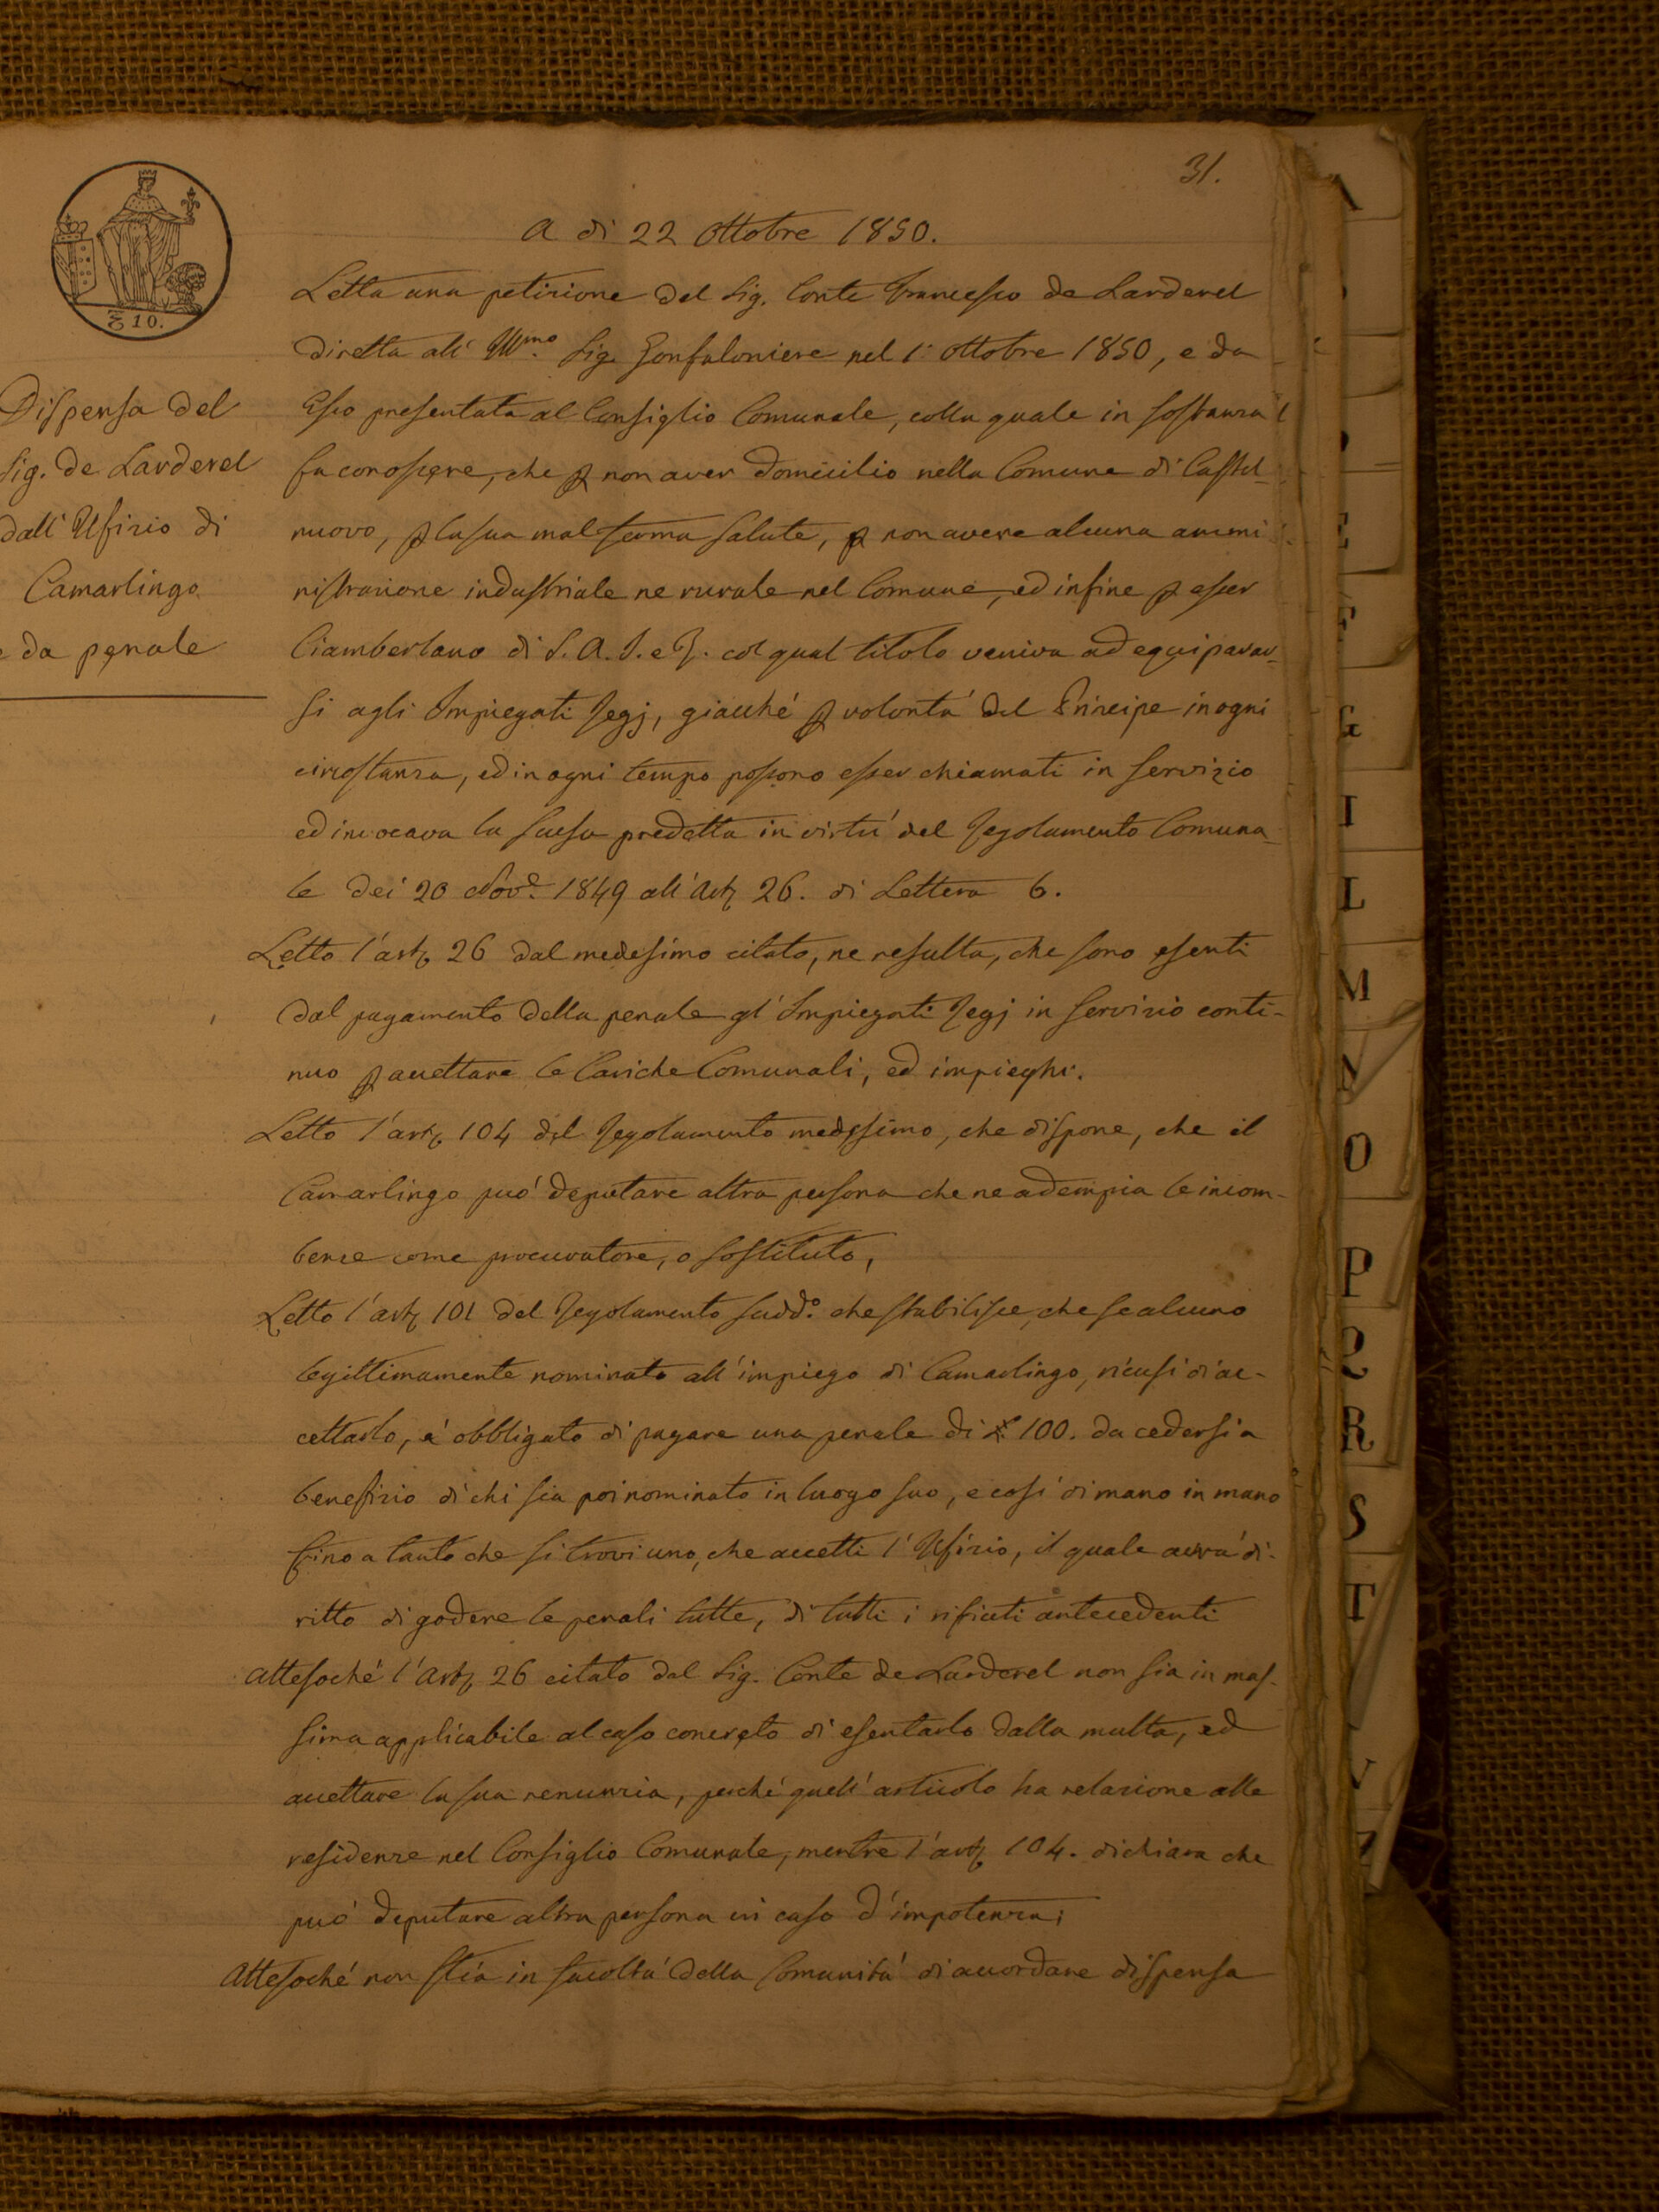 31.
A dì 22 Ottobre 1850.
Letta una petizione del Sig. Conte Francesco de Larderel
diretta all' Ill.mo Sig. Gonfaloniere nel 1° Ottobre 1850, e da
Esso presentata al Consiglio Comunale, colla quale in sostanza
fa conoscere, che p non aver domicilio nella Comune di Castel-
nuovo, p la sua mal ferma salute, p non avere alcuna ammi
nistrazione industriale ne rurale nel Comune, ed infine p esser
Ciamberlano di S. A. I. e R. col qual titolo veniva ad equiparar-
si agli Impiegati Regj, giacché p volontà del Principe in ogni
circostanza, ed in ogni tempo possono esser chiamati in servizio
ed invocava la scusa predetta in virtù del Regolamento Comuna-
le dei 20 Nov.e 1849 all' Art. 26. di Lettera 6.
Letto l'art. 26 dal medesimo citato, ne resulta, che sono esenti
dal pagamento della penale gl' Impiegati Regj in servizio conti-
nuo p accettare le Cariche Comunali, ed impieghi.
Letto l'art. 104 del Regolamento medesimo, che dispone, che il
Camarlingo può deputare altra persona che ne adempia le incom-
benze come procuratore, o sostituto,
Letto l'art. 101 del Regolamento sudd.° che stabilisce, che se alcuno
legittimamente nominato all' impiego di Camarlingo, ricusi di ac-
cettarlo, è obbligato di pagare una penale di £ 100. da cedersi a
benefizio di chi sia poi nominato in luogo suo, e così di mano in mano
fino a tanto che si trovi uno, che accetti l' Ufizio, il quale avrà di-
ritto di godere le penali tutte, di tutti i rifiuti antecedenti
Attesoché l'Art. 26 citato dal Sig. Conte de Larderel non sia in mas-
sima applicabile al caso concreto di esentarlo dalla multa, ed
accettare la sua renunzia, perché quell' articolo ha relazione alle
residenze nel Consiglio Comunale, mentre l'art. 104. dichiara che
può deputare altra persona in caso d'impotenza;
Attesoché non stia in facoltà della Comunità di accordare dispensa
₶ 10.
Dispensa del
Sig. de Larderel
dall' Ufizio di
Camarlingo
e da penale
A
E
F
G
I
L
M
N
O
P
Q
R
S
T
V
Z